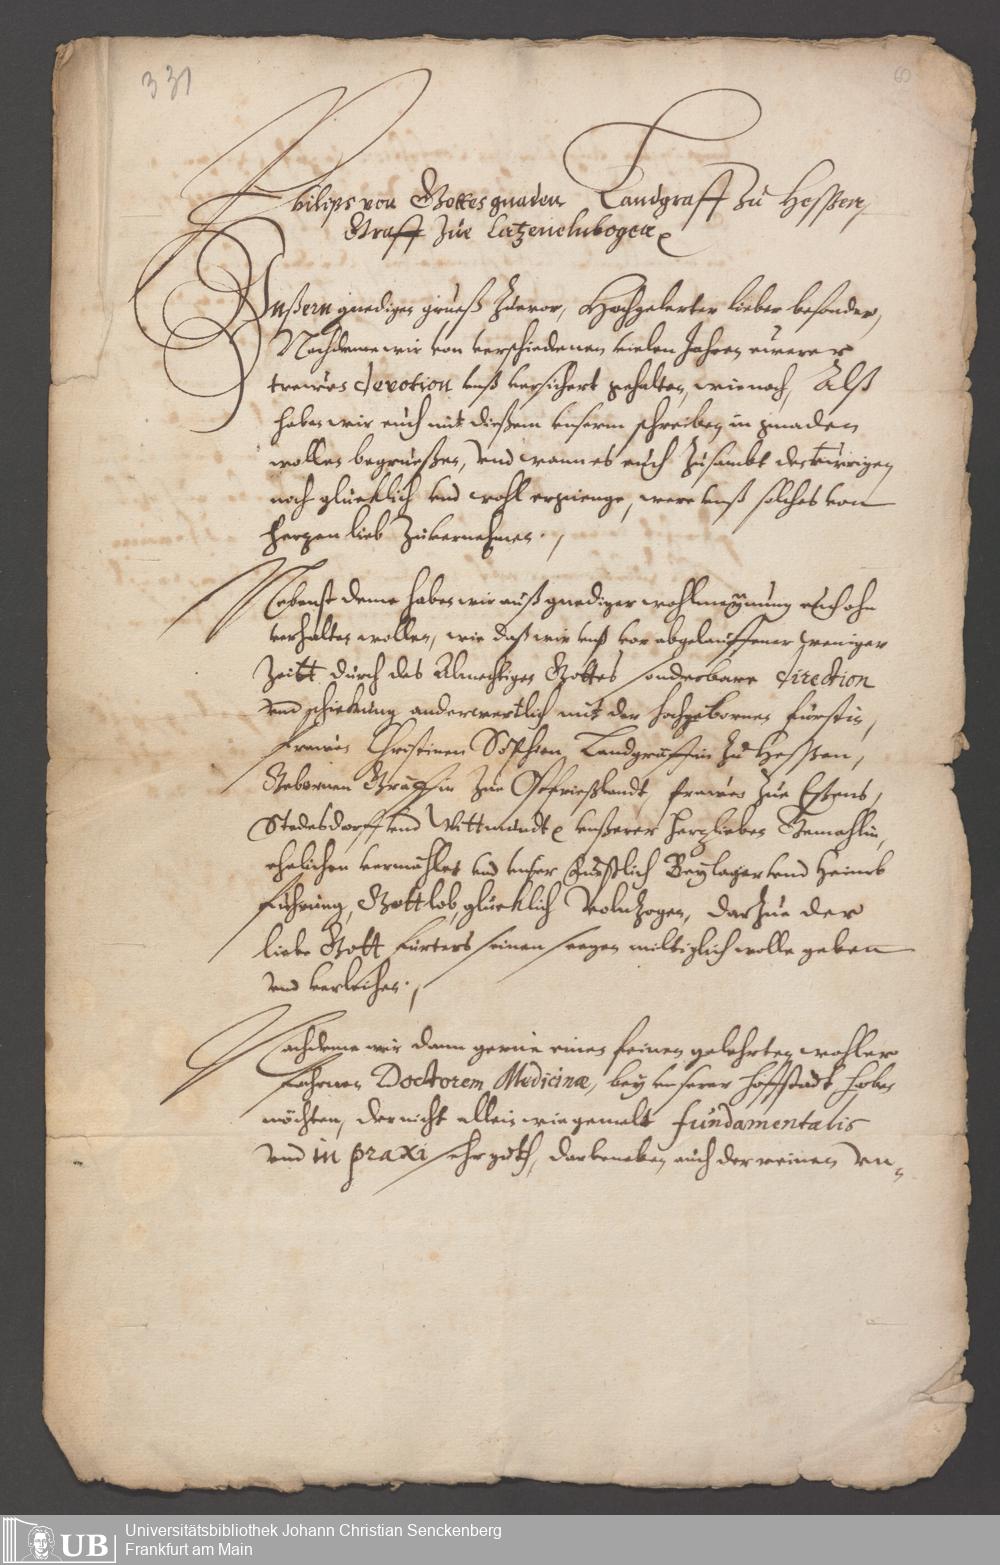 331
Philips von Gottes gnaden Landgraff zu Hessen,
Graff zue Catzenelnbogen
Unßern gnedigen grueß zuevor, Hochgelerter lieber besonder,
Nachdeme wir von verschiedenen vielen Jahren euwerer
trewes devotion unß versichert gehalten, wie noch, Alß
haben wir euch mit dießem unserm schreiben in gnaden
wollen begrueßen, und wann es euch zusambt des ewrigen
noch glücklich und wohl ergienge, were unß solches von
herzen lieb zuvernehmen.
Nebenst deme haben wir auß gnediger wohlmeynung euch ohn
verhalten wollen, wie daß wir unß vor abgelauffener weniger
Zeitt durch des Almechtigen Gottes sonderbare direction
und schickung anderwertlich mit der hochgebornen Fürstin,
Frawen Christinen Sophien Landgräffin zu Hessen,
Gebornen Gräffin zue Ostfrießlandt, Frawen zue Eßens,
Stedesdorff und Wittmundt unßerer herzlieben Gemahlin,
ehelichen vermählet und unser Fürstlich Beylager und Heimb
führung, Gottlob, glücklich volnzogen, darzue der
liebe Gott fürters seinen seegen miltiglich wolle geben
und verleihen.
Nachdeme wir dann gerne einen feinen gelehrten wohler
fahrnen Doctorem Medicinæ, bey unserer hoffstadt haben
möchten, der nicht allein wie gemelt fundamentalis
und in praxi sehr guth, darbeneben auch der reinen un
Universitätsbibliothek Johann Christian Senckenberg
Frankfurt am Main
UB